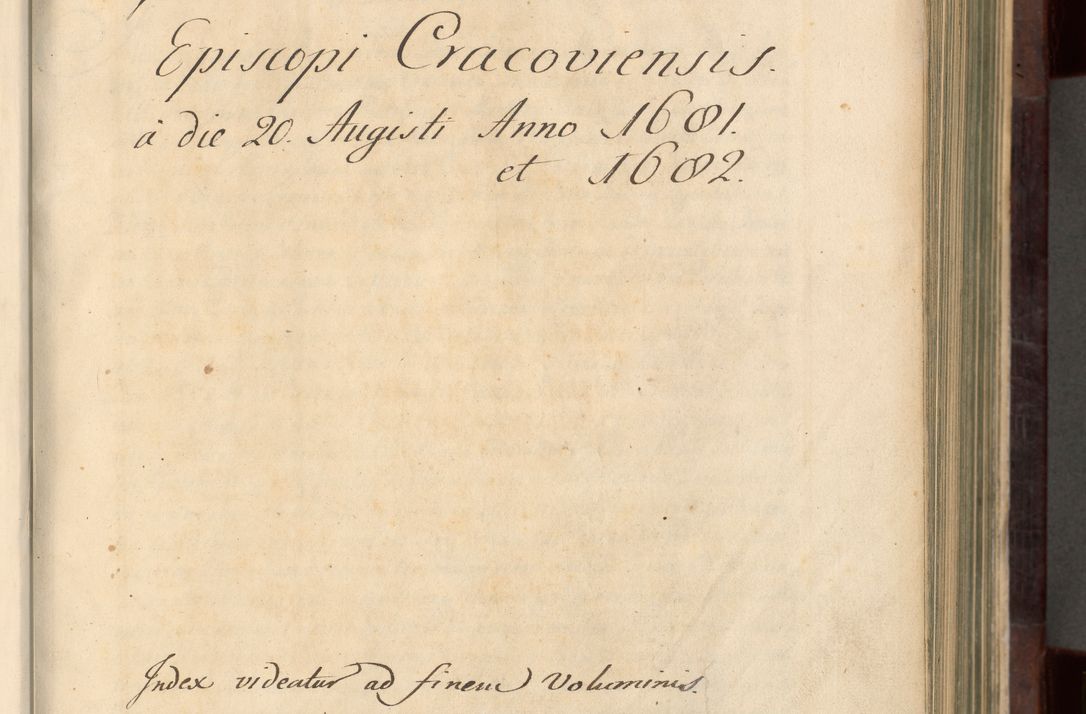 Episcopi Cracoviensis.
à die 20. Augisti Anno 1681.
et 1682.
Index videatur ad finem Voluminis.